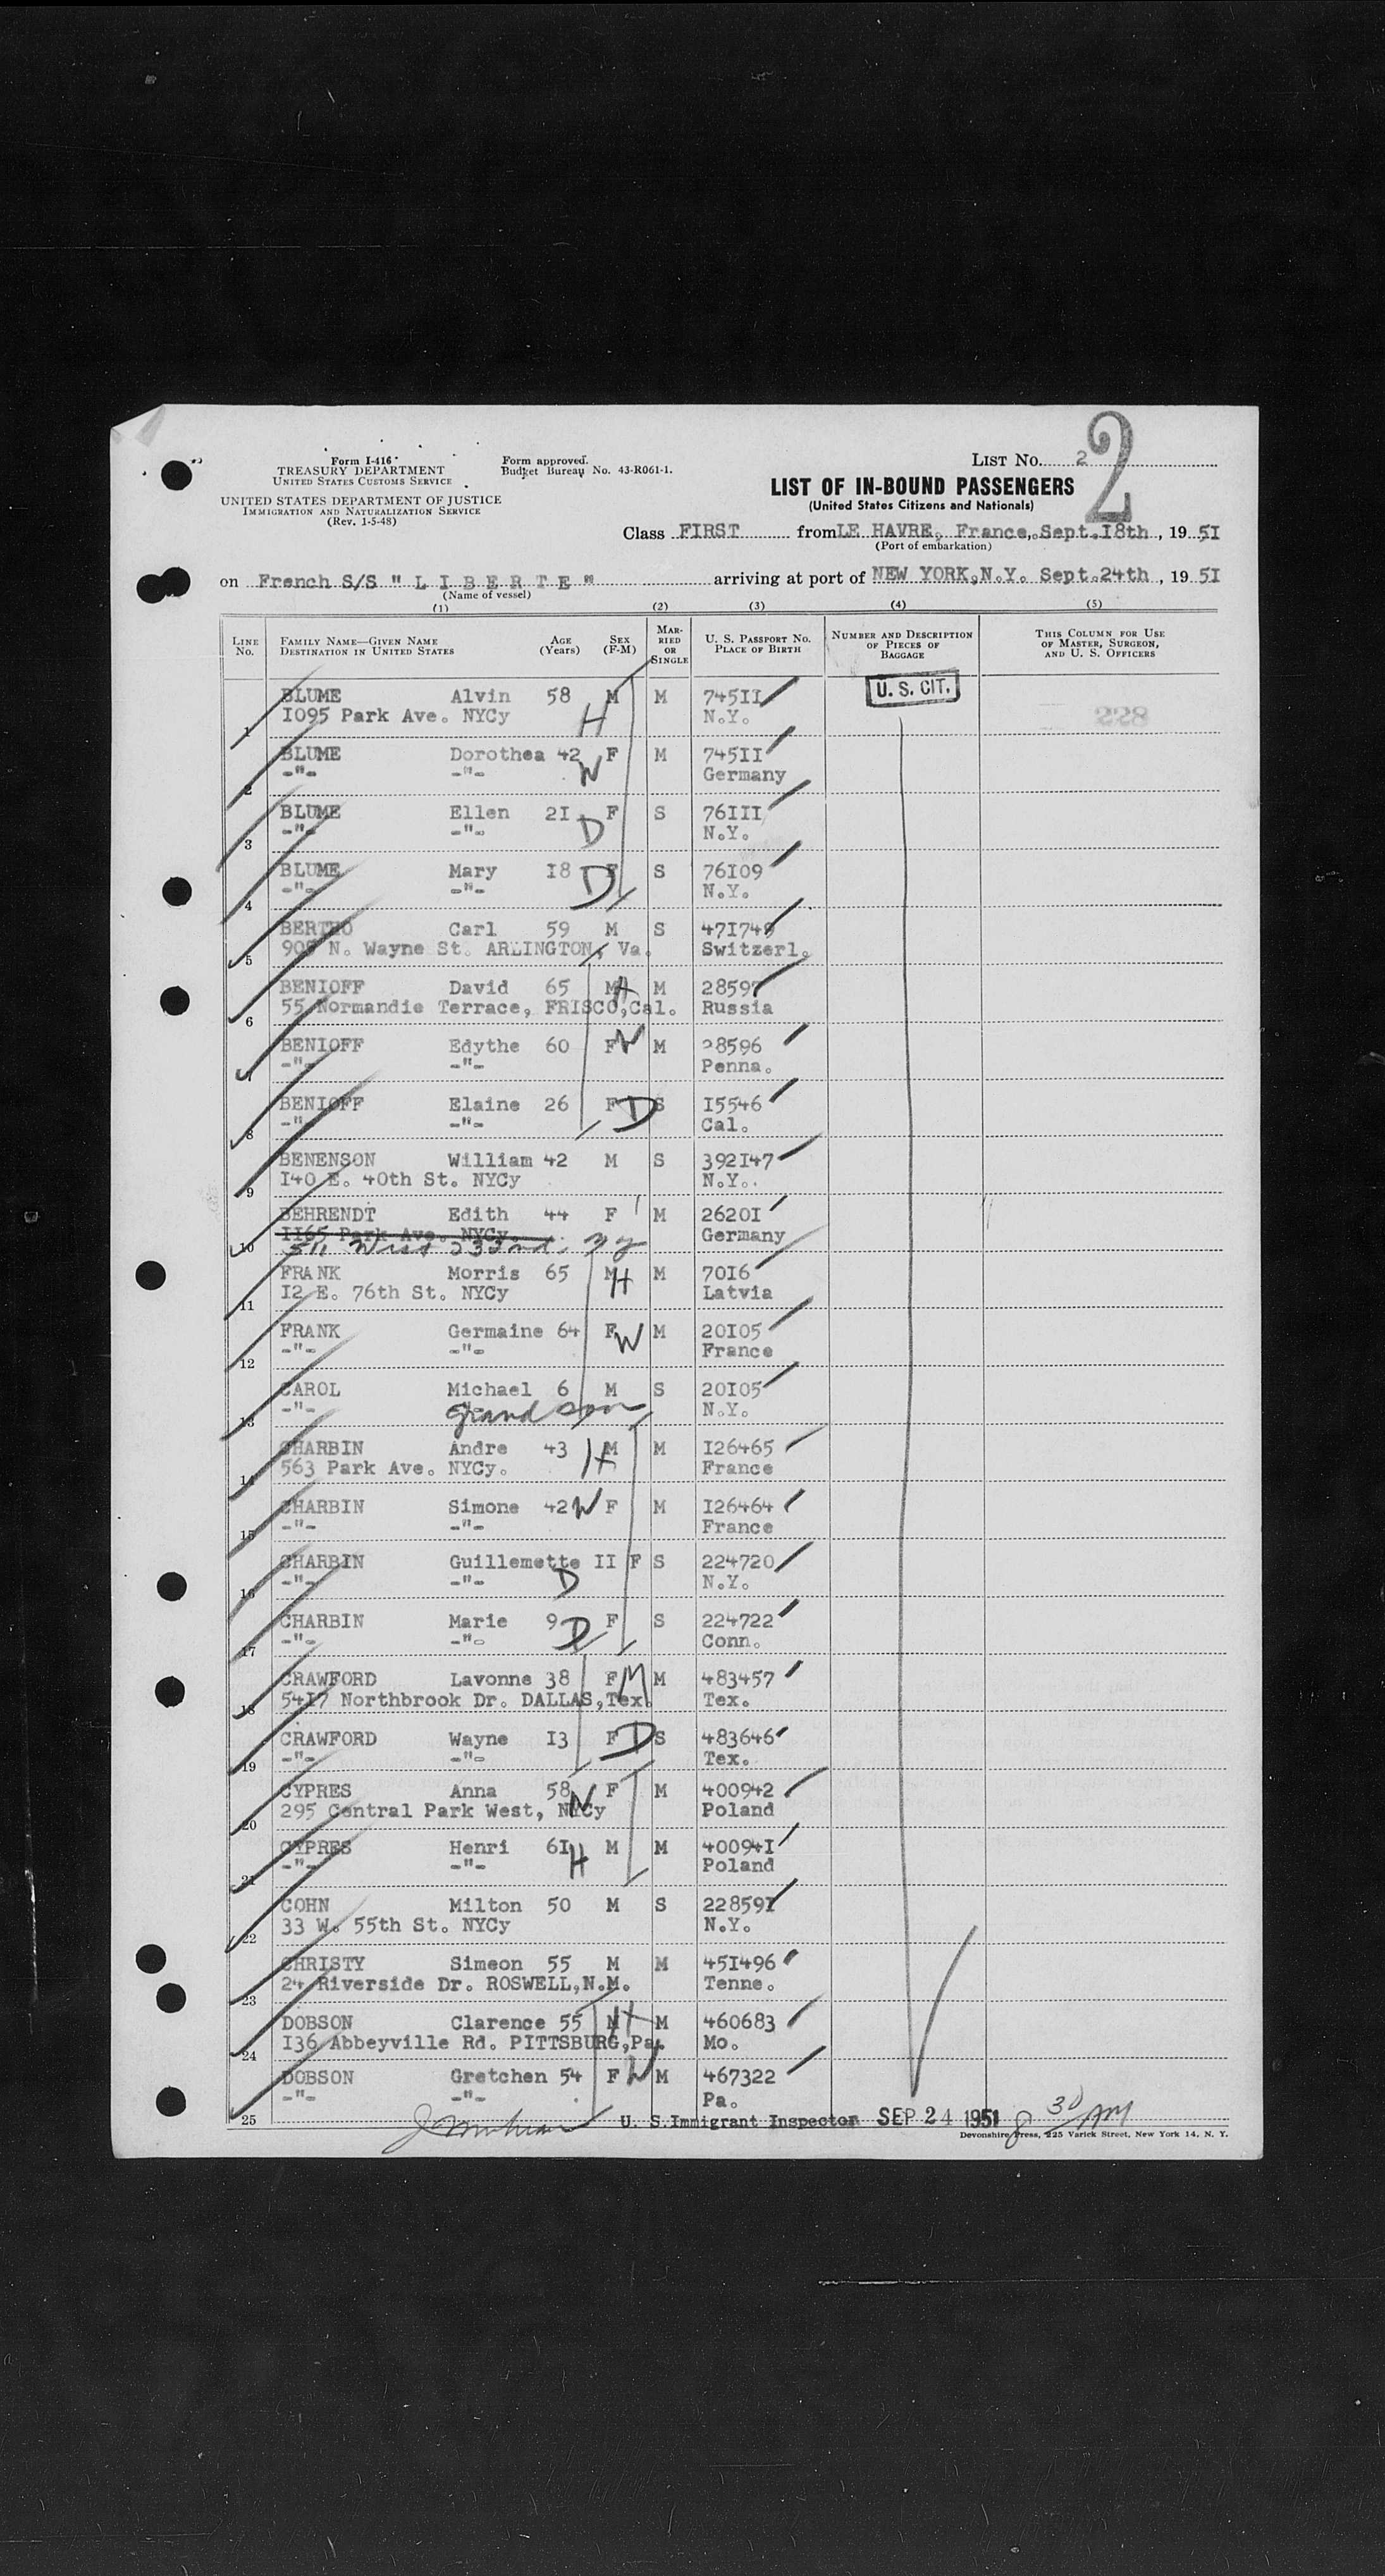 Form I-416
TREASURY DEPARTMENT
UNITED STATES CUSTOMS SERVICE
UNITED STATES DEPARTMENT OF JUSTICE
IMMIGRATION AND NATURALIZATION SERVICE
(Rev. 1-5-48)
Form approved.
Budget Bureau No. 43-R061-1.
LIST NO. 2
2
LIST OF IN-BOUND PASSENGERS
(United States Citizens and Nationals)
Class FIRST from LE HAVRE, France, Sept. 18th, 19 51
(Port of embarkation)
on French S/S " L I B E R T E " arriving at port of NEW YORK, N.Y. Sept. 24th, 19 51
(Name of vessel)
(1) (2) (3) (4) (5)
LINE NO. FAMILY NAME—GIVEN NAME DESTINATION IN UNITED STATES AGE (Years) SEX (F-M) MARRIED OR SINGLE U. S. PASSPORT NO. PLACE OF BIRTH NUMBER AND DESCRIPTION OF PIECES OF BAGGAGE THIS COLUMN FOR USE OF MASTER, SURGEON, AND U. S. OFFICERS
BLUME Alvin 58 M M 745II U. S. CIT.
1 I095 Park Ave. NYCy H N.Y. 228
BLUME Dorothea 42 W F M 745II
2 -"- -"- Germany
BLUME Ellen 2I F S 76III
3 -"- -"- D N.Y.
BLUME Mary I8 F S 76I09
4 -"- -"- D N.Y.
BERTHO Carl 59 M S 47I749
5 905 N. Wayne St. ARLINGTON, Va. Switzerl.
BENIOFF David 65 M H M 28597
6 55 Normandie Terrace, FRISCO, Cal. Russia
BENIOFF Edythe 60 F W M 28596
7 -"- -"- Penna.
BENIOFF Elaine 26 F D S I5546
8 -"- -"- Cal.
BENENSON William 42 M S 392I47
9 I40 E. 40th St. NYCy N.Y.
BEHRENDT Edith 44 F M 2620I
10 II65 Park Ave. NYCy. Germany
511 West 232nd. NY
FRANK Morris 65 M H M 70I6
11 I2 E. 76th St. NYCy Latvia
FRANK Germaine 64 F W M 20I05
12 -"- -"- France
CAROL Michael 6 M S 20I05
13 -"- Grandson N.Y.
CHARBIN Andre 43 M H M I26465
14 563 Park Ave. NYCy. France
CHARBIN Simone 42 W F M I26464
15 -"- -"- France
CHARBIN Guillemette II F S 224720
16 -"- -"- D N.Y.
CHARBIN Marie 9 D F S 224722
17 -"- -"- Conn.
CRAWFORD Lavonne 38 F M M 483457
18 5417 Northbrook Dr. DALLAS, Tex. Tex.
CRAWFORD Wayne I3 F D S 483646
19 -"- -"- Tex.
CYPRES Anna 58 W F M 400942
20 295 Central Park West, NYCy Poland
CYPRES Henri 6I H M M 40094I
21 -"- -"- Poland
COHN Milton 50 M S 22859I
22 33 W. 55th St. NYCy N.Y.
CHRISTY Simeon 55 M M 45I496
23 24 Riverside Dr. ROSWELL, N.M. Tenne.
DOBSON Clarence 55 M H M 460683
24 I36 Abbeyville Rd. PITTSBURG, Pa. Mo.
DOBSON Gretchen 54 F W M 467322
25 -"- -"- Pa.
U. S. Immigrant Inspector SEP 24 1951 8 30 AM
Devonshire Press, 225 Varick Street, New York 14, N. Y.